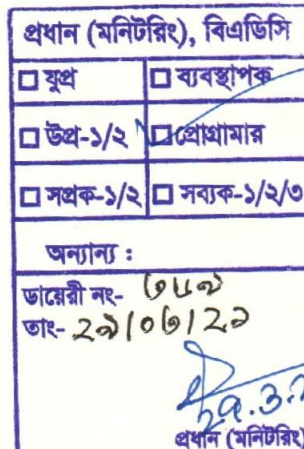 প্রধান (মনিটরিং), বিএডিসি
☐ যুপ্র ☐ ব্যবস্থাপক
☐ উপ্র-১/২ ☐ প্রোগ্রামার
☐ সপ্রক-১/২ ☐ সব্যক-১/২/৩
অন্যান্য :
ডায়েরী নং-
তাং- ২৯/০৩/২১
প্রধান (মনিটরিং)